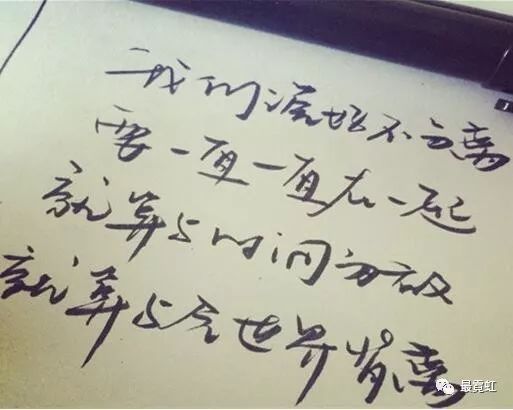 我们浪迹不分离
要一直一直在一起
就算与时间为敌
就算与全世界背离
最霓虹